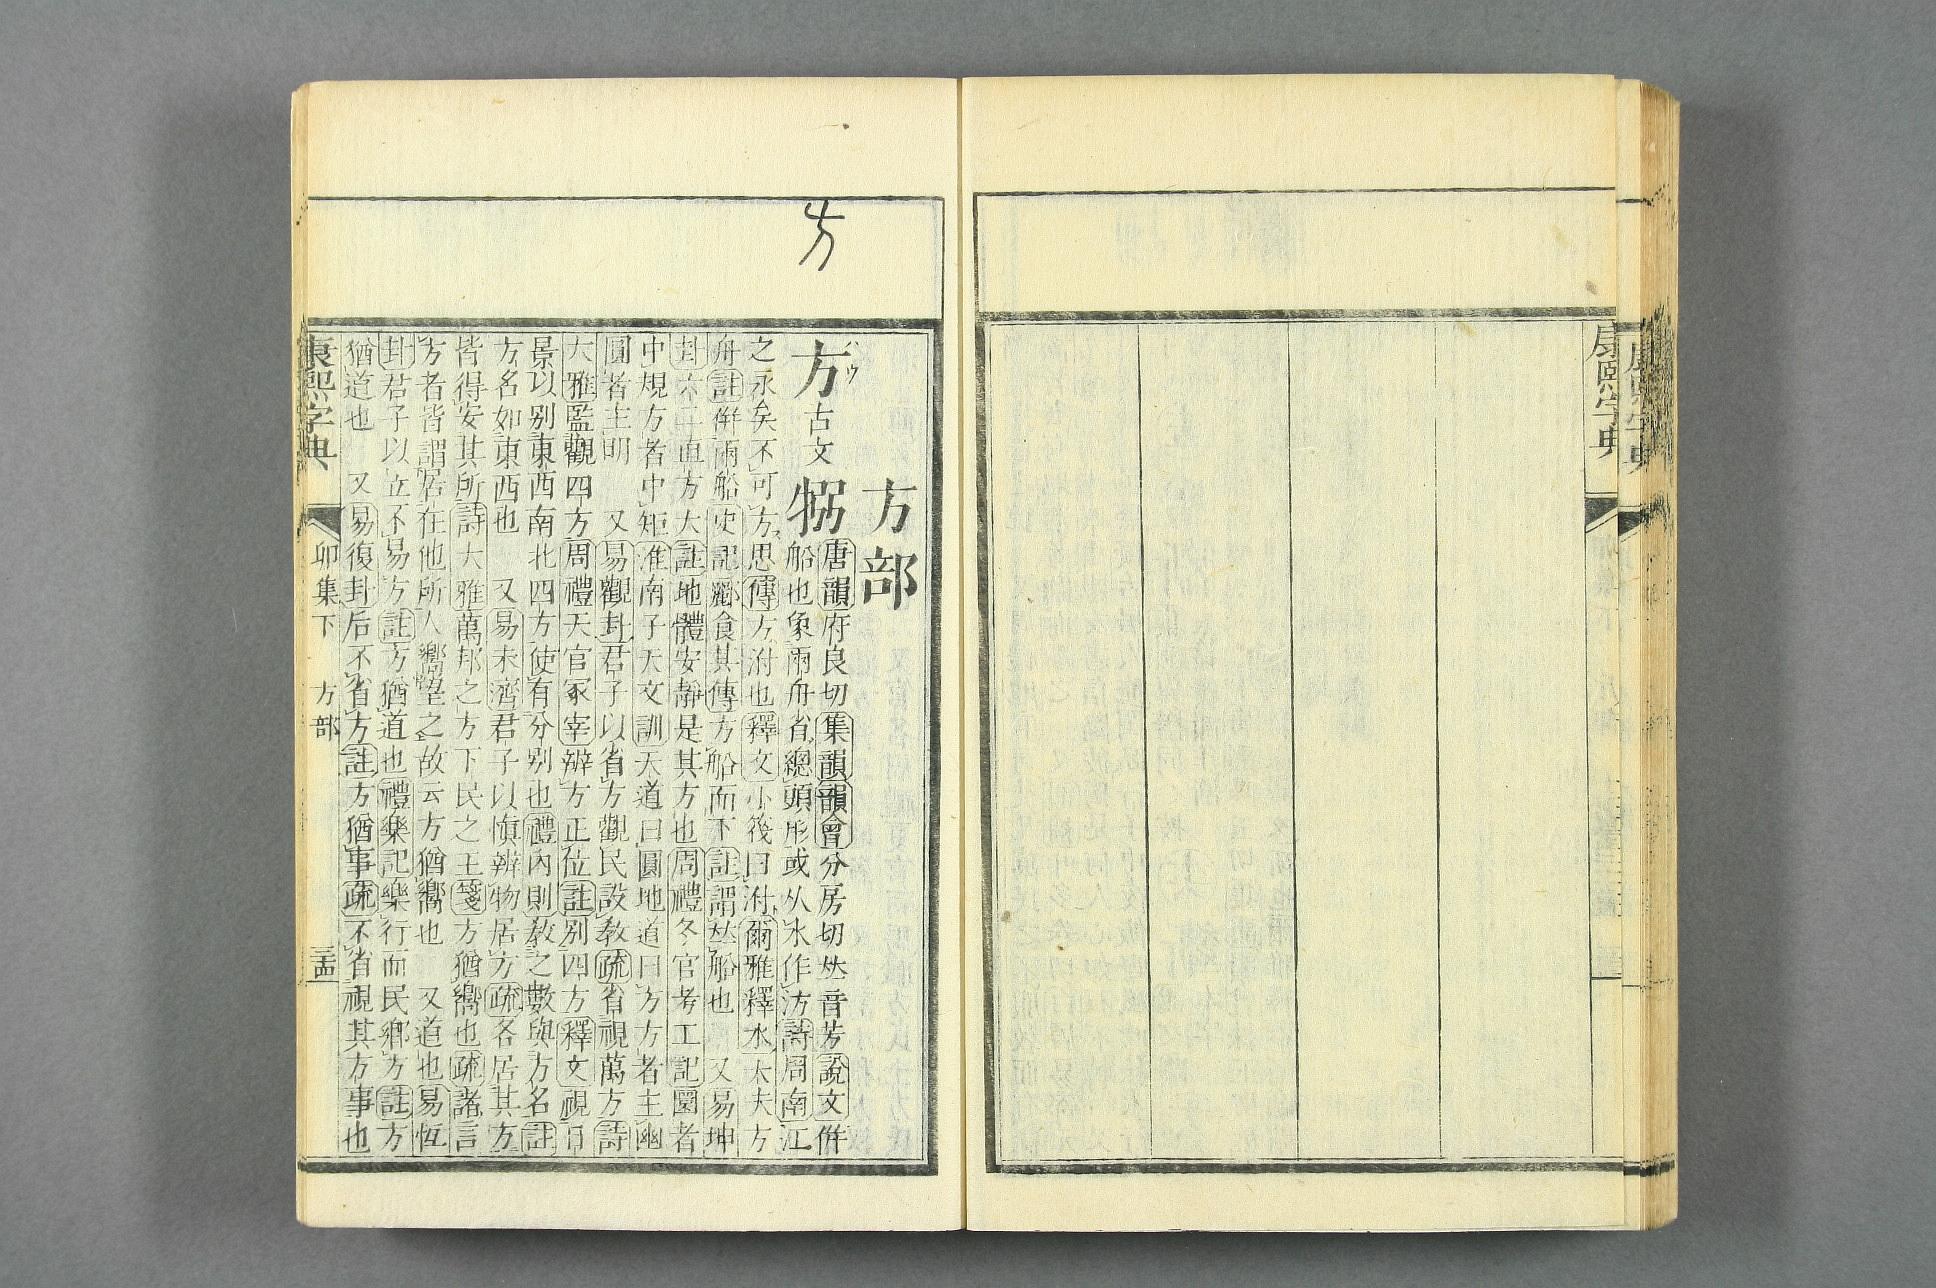 康熙字典
康熙字典
方
方部
方 ハウ 古文 㧈 唐韻府良切集韻韻會分房切𠀤音芳說文倂
船也象兩舟省總頭形或从水作汸詩周南江
之永矣不可方思傳方泭也釋文小筏曰泭爾雅釋水大夫方
舟註倂兩船史記酈食其傳方船而下註謂𠀤船也 又易坤
卦六二直方大註地體安靜是其方也周禮冬官考工記圜者
中規方者中矩淮南子天文訓天道曰圓地道曰方方者主幽
圓者主明 又易觀卦君子以省方觀民設敎疏省視萬方詩
大雅監觀四方周禮天官冢宰辨方正位註別四方釋文視日
景以別東西南北四方使有分別也禮內則敎之數與方名註
方名如東西也 又易未濟君子以愼辨物居方疏各居其方
皆得安其所詩大雅萬邦之方下民之王箋方猶嚮也疏諸言
方者皆謂居在他所人嚮望之故云方猶嚮也 又道也易恆
卦君子以立不易方註方猶道也禮樂記樂行而民鄉方註方
猶道也 又易復卦后不省方註方猶事疏不省視其方事也
康熙字典 卯集下 方部